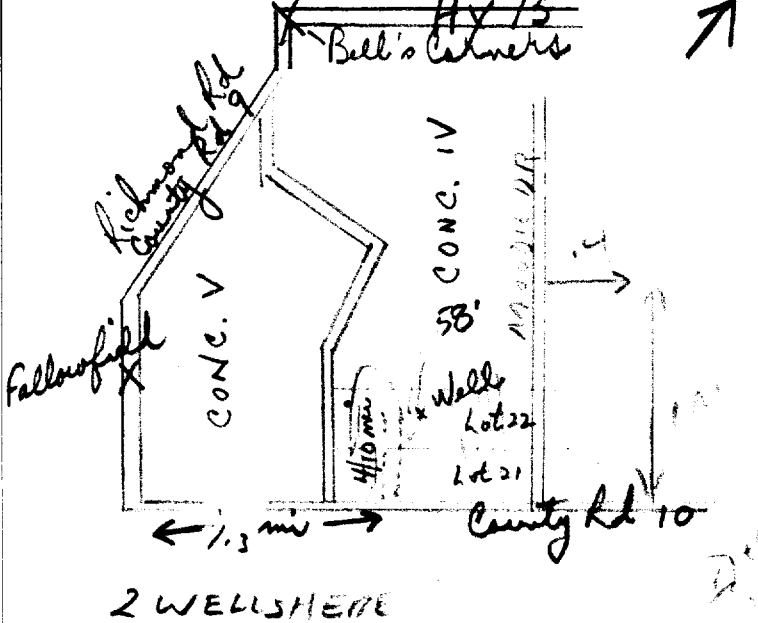 Hy 15
Bell's Corners
Richmond Rd
County Rd 9
CONC. IV
CONC. V
58'
Fallowfield
X
x Wells
Lot 22
4/10 mi
Lot 21
County Rd 10
1.3 mi
2 WELLS HERE